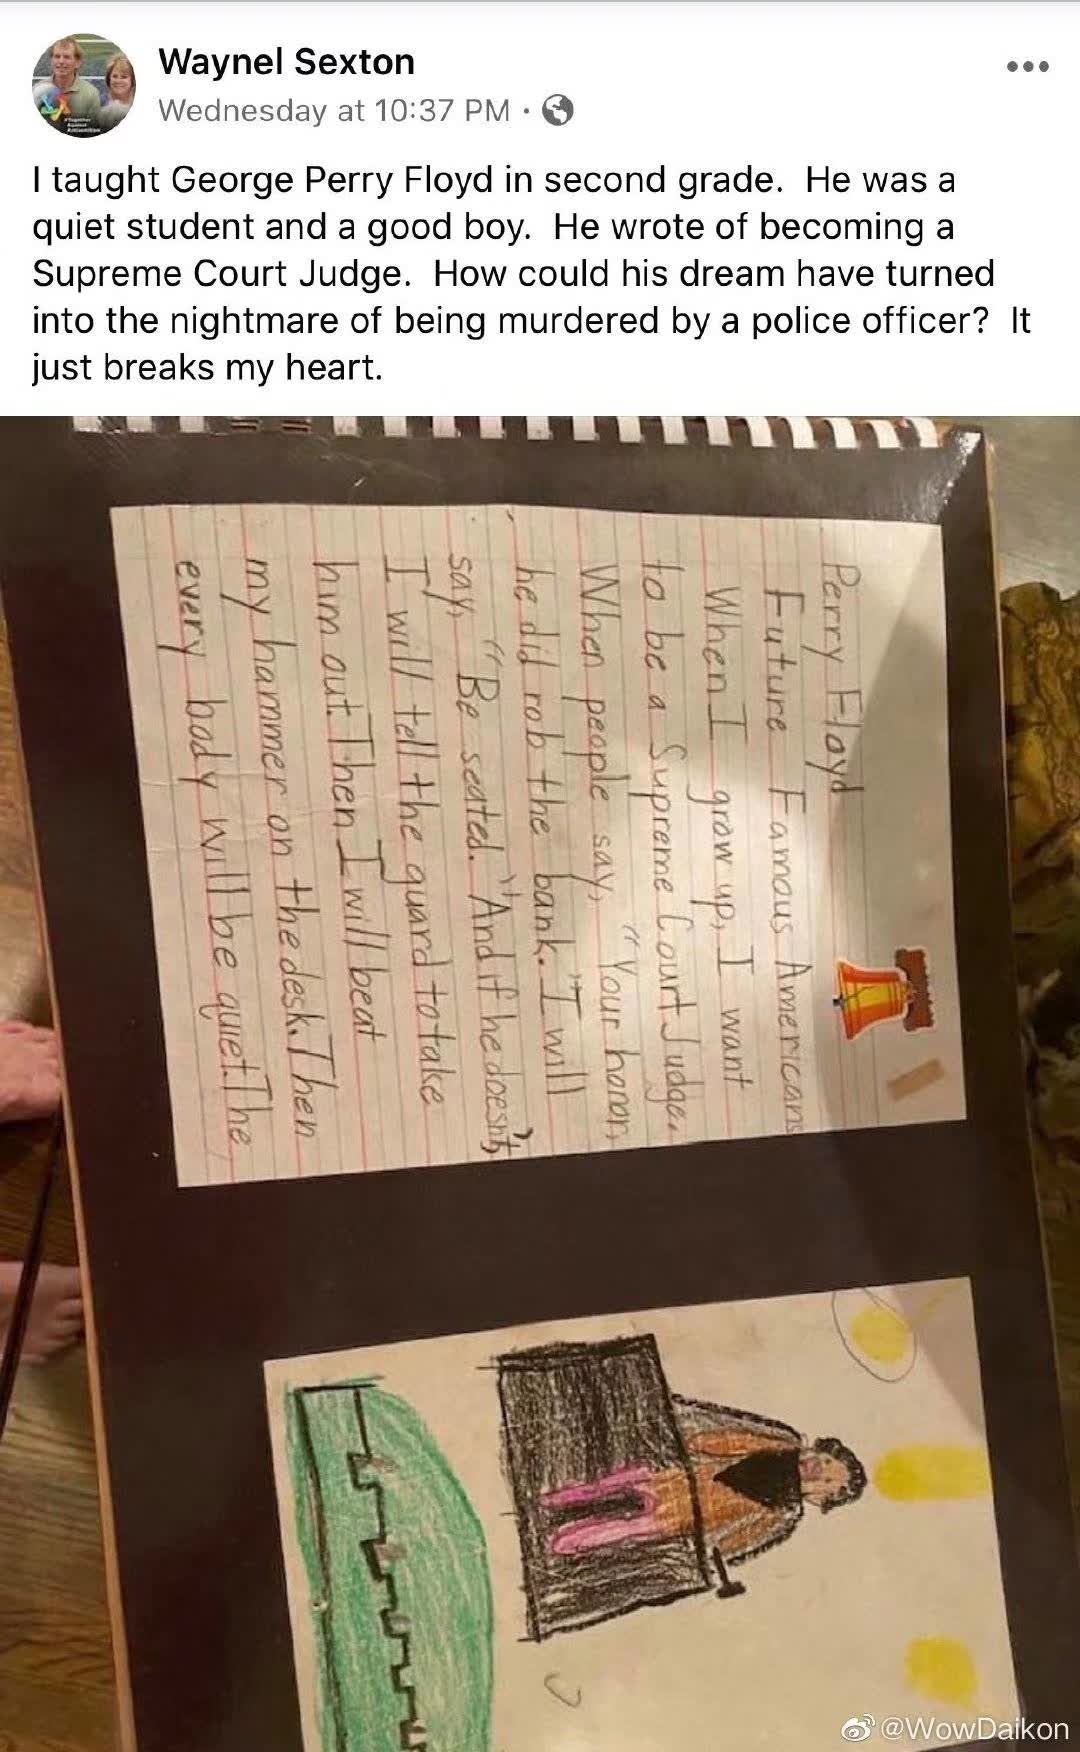 Waynel Sexton
Wednesday at 10:37 PM ·
I taught George Perry Floyd in second grade.  He was a
quiet student and a good boy.  He wrote of becoming a
Supreme Court Judge.  How could his dream have turned
into the nightmare of being murdered by a police officer?  It
just breaks my heart.
Perry Floyd
Future Famous Americans
When I grow up, I want
to be a Supreme Court Judge.
When people say, "Your honor,
he did rob the bank." I will
say, "Be seated." And if he doesn't,
I will tell the guard to take
him out. Then I will beat
my hammer on the desk. Then
every body will be quiet. The
@WowDaikon